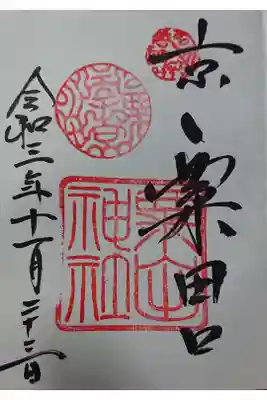 京、粟田口
粟田
神社
令和三年十一月二十二日